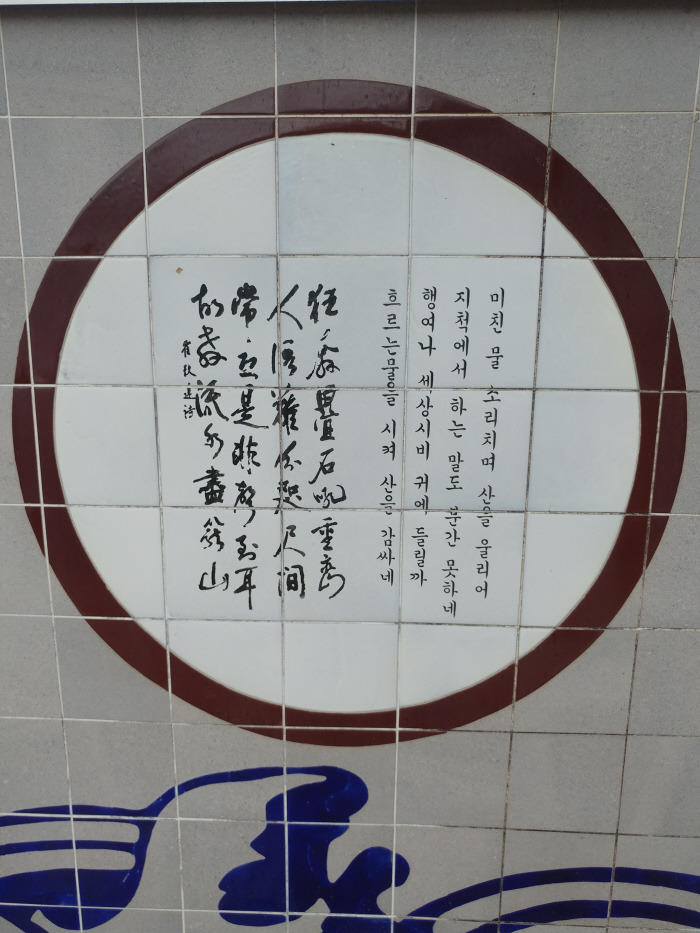 미친 물 소리치며 산을 울리어
지척에서 하는 말도 분간 못하네
행여나 세상시비 귀에 들릴까
흐르는물을 시켜 산을 감싸네
狂奔疊石吼重巒
人語難分咫尺間
常恐是非聲到耳
故教流水盡籠山
崔致遠詩